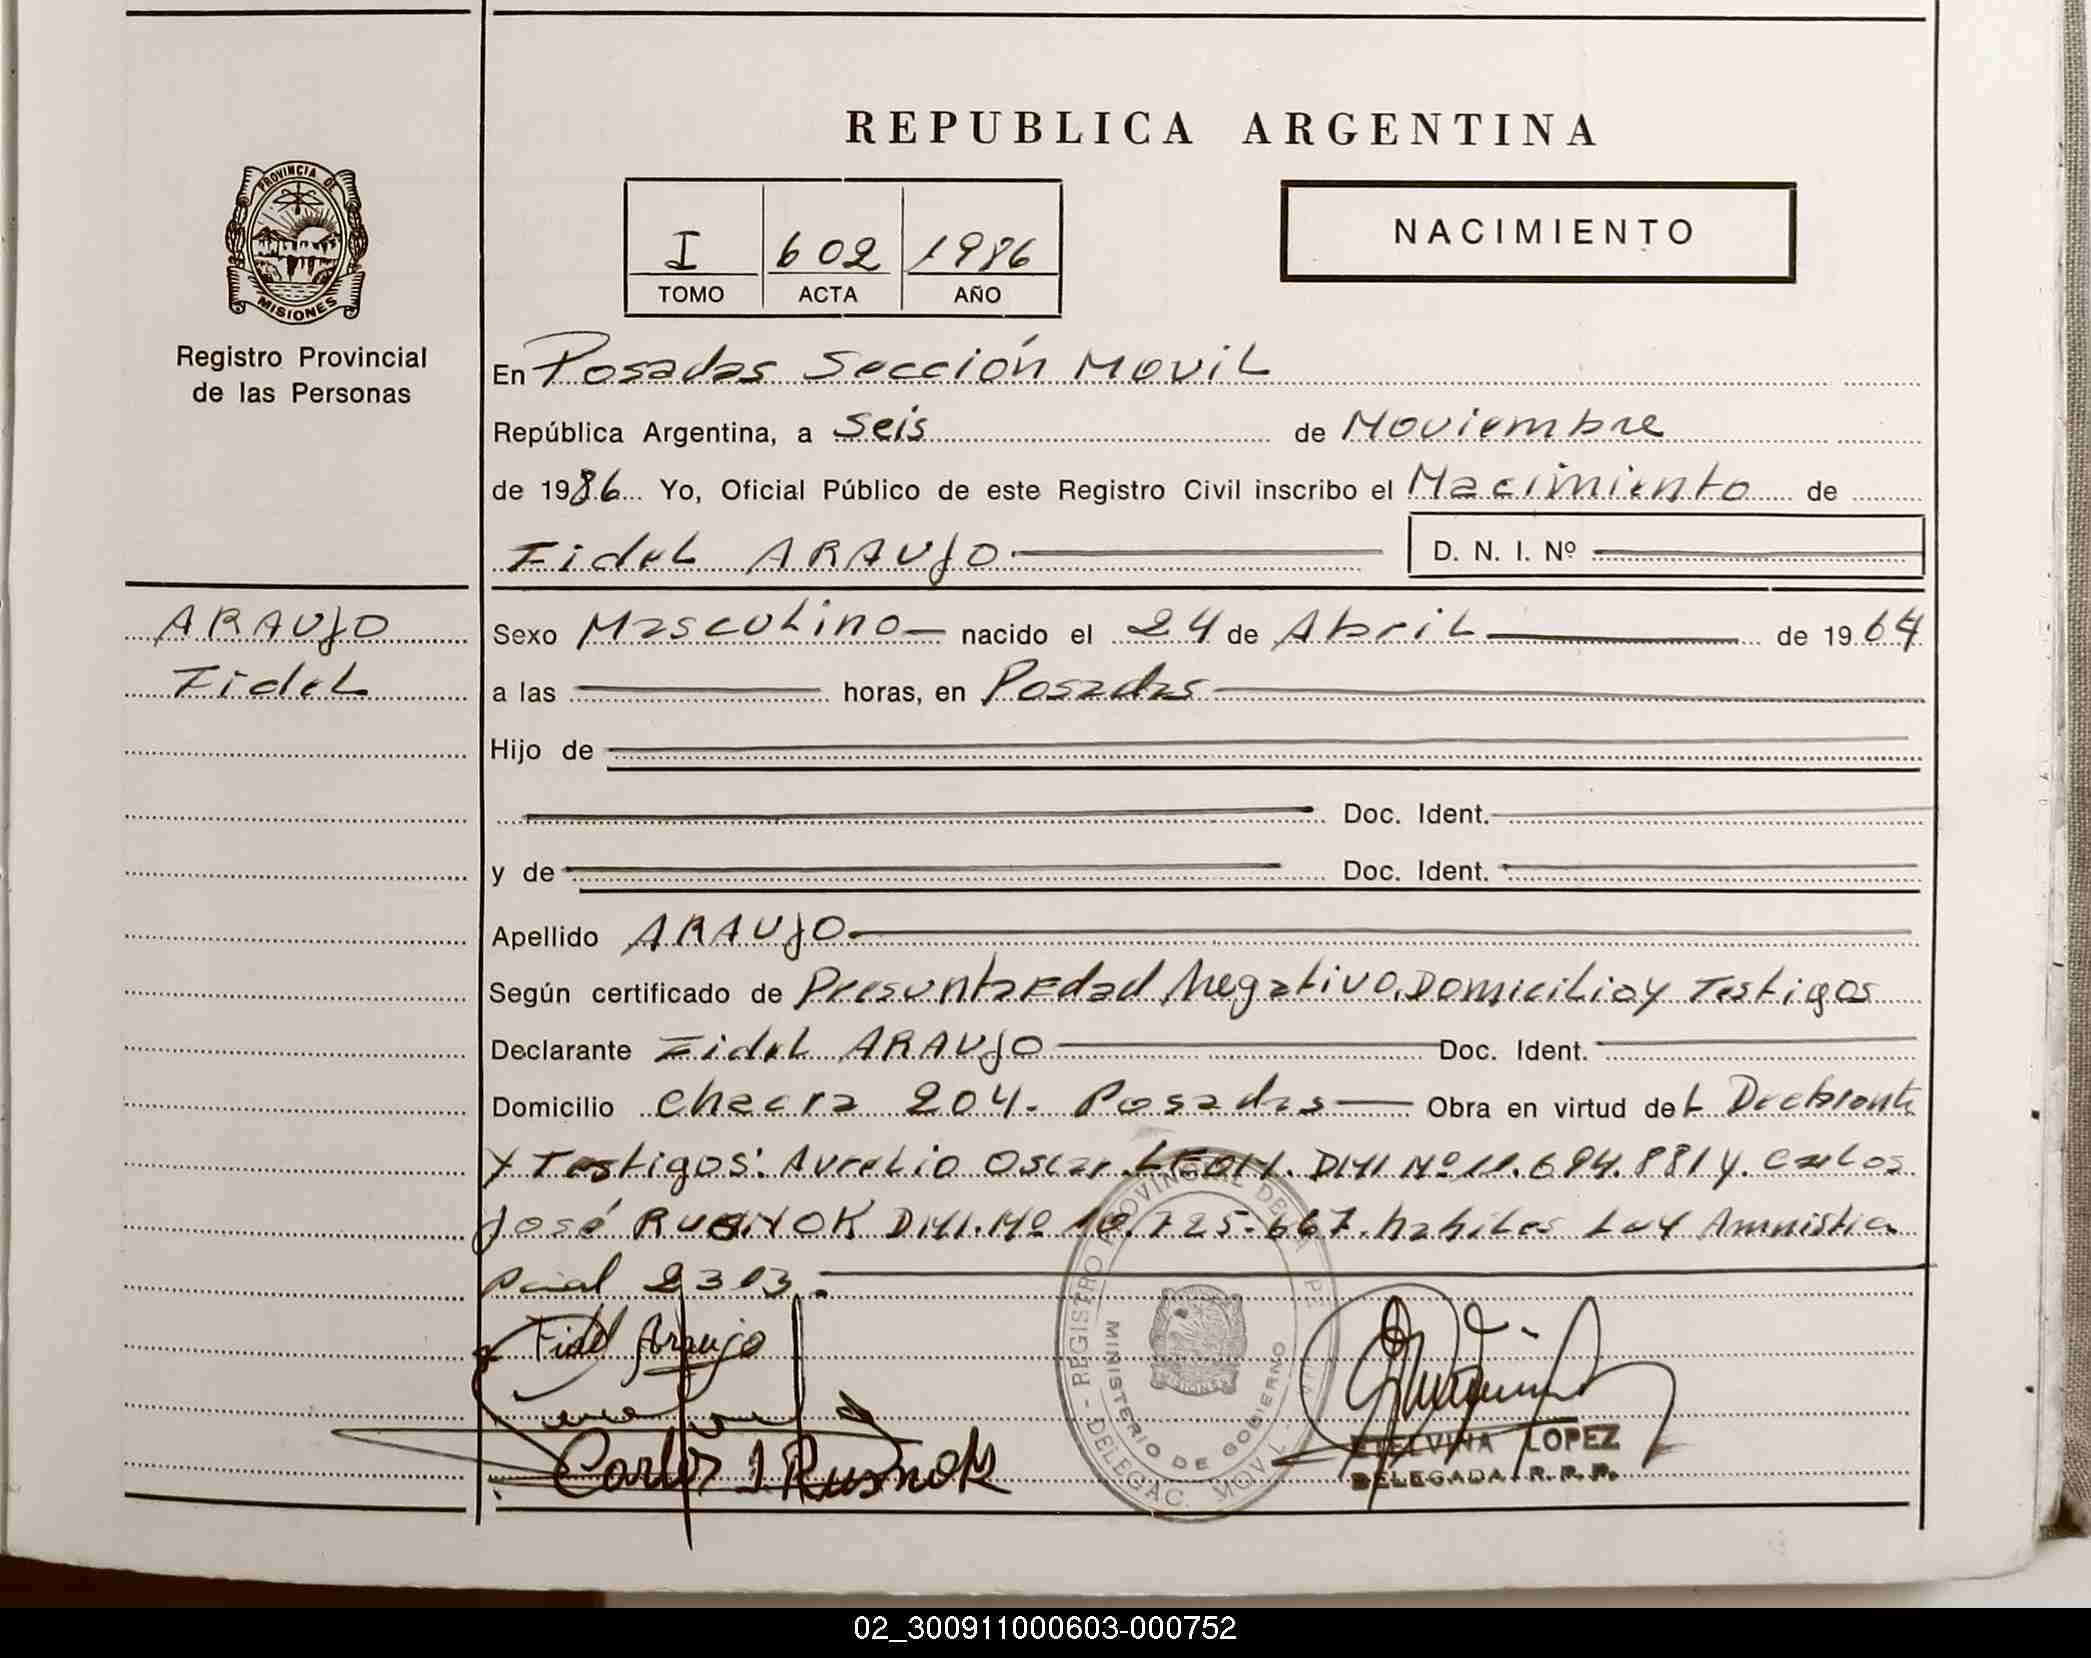 REPUBLICA ARGENTINA
PROVINCIA DE MISIONES
Registro Provincial
de las Personas
I 602 1986
TOMO ACTA AÑO
NACIMIENTO
En Posadas Sección Movil
República Argentina, a Seis de Noviembre
de 1986 Yo, Oficial Público de este Registro Civil inscribo el Nacimiento de
Fidel ARAUJO D. N. I. Nº
ARAUJO
Fidel
Sexo Masculino nacido el 24 de Abril de 1964
a las horas, en Posadas
Hijo de
Doc. Ident.
y de Doc. Ident.
Apellido ARAUJO
Según certificado de Presunta Edad Negativo, Domicilio y Testigos
Declarante Fidel ARAUJO Doc. Ident.
Domicilio Chacra 204. Posadas Obra en virtud del Declarante
y Testigos: Aurelio Oscar LEON. DNI Nº 11.694.881 y. Carlos
José RUSNOK DNI. Nº 10.725.667. habiles Ley Amnistia
2303.
Fidel Araujo
Carlos J. Rusnok
REGISTRO PROVINCIAL DE LAS PE
MINISTERIO DE GOBIERNO
DELEGAC. MOVIL
ETELVINA LOPEZ
DELEGADA R. P. P.
02_300911000603-000752